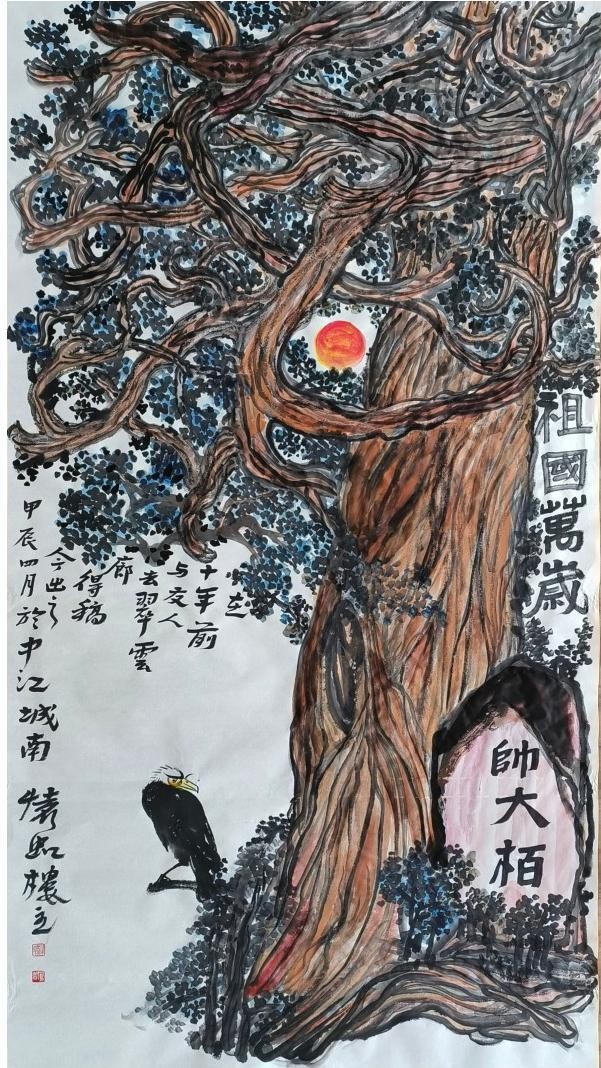 祖國萬歲
帥大栢
在
十年前
与友人
去翠雲
廊
得稿
今画之
甲辰四月於中江城南
樓主